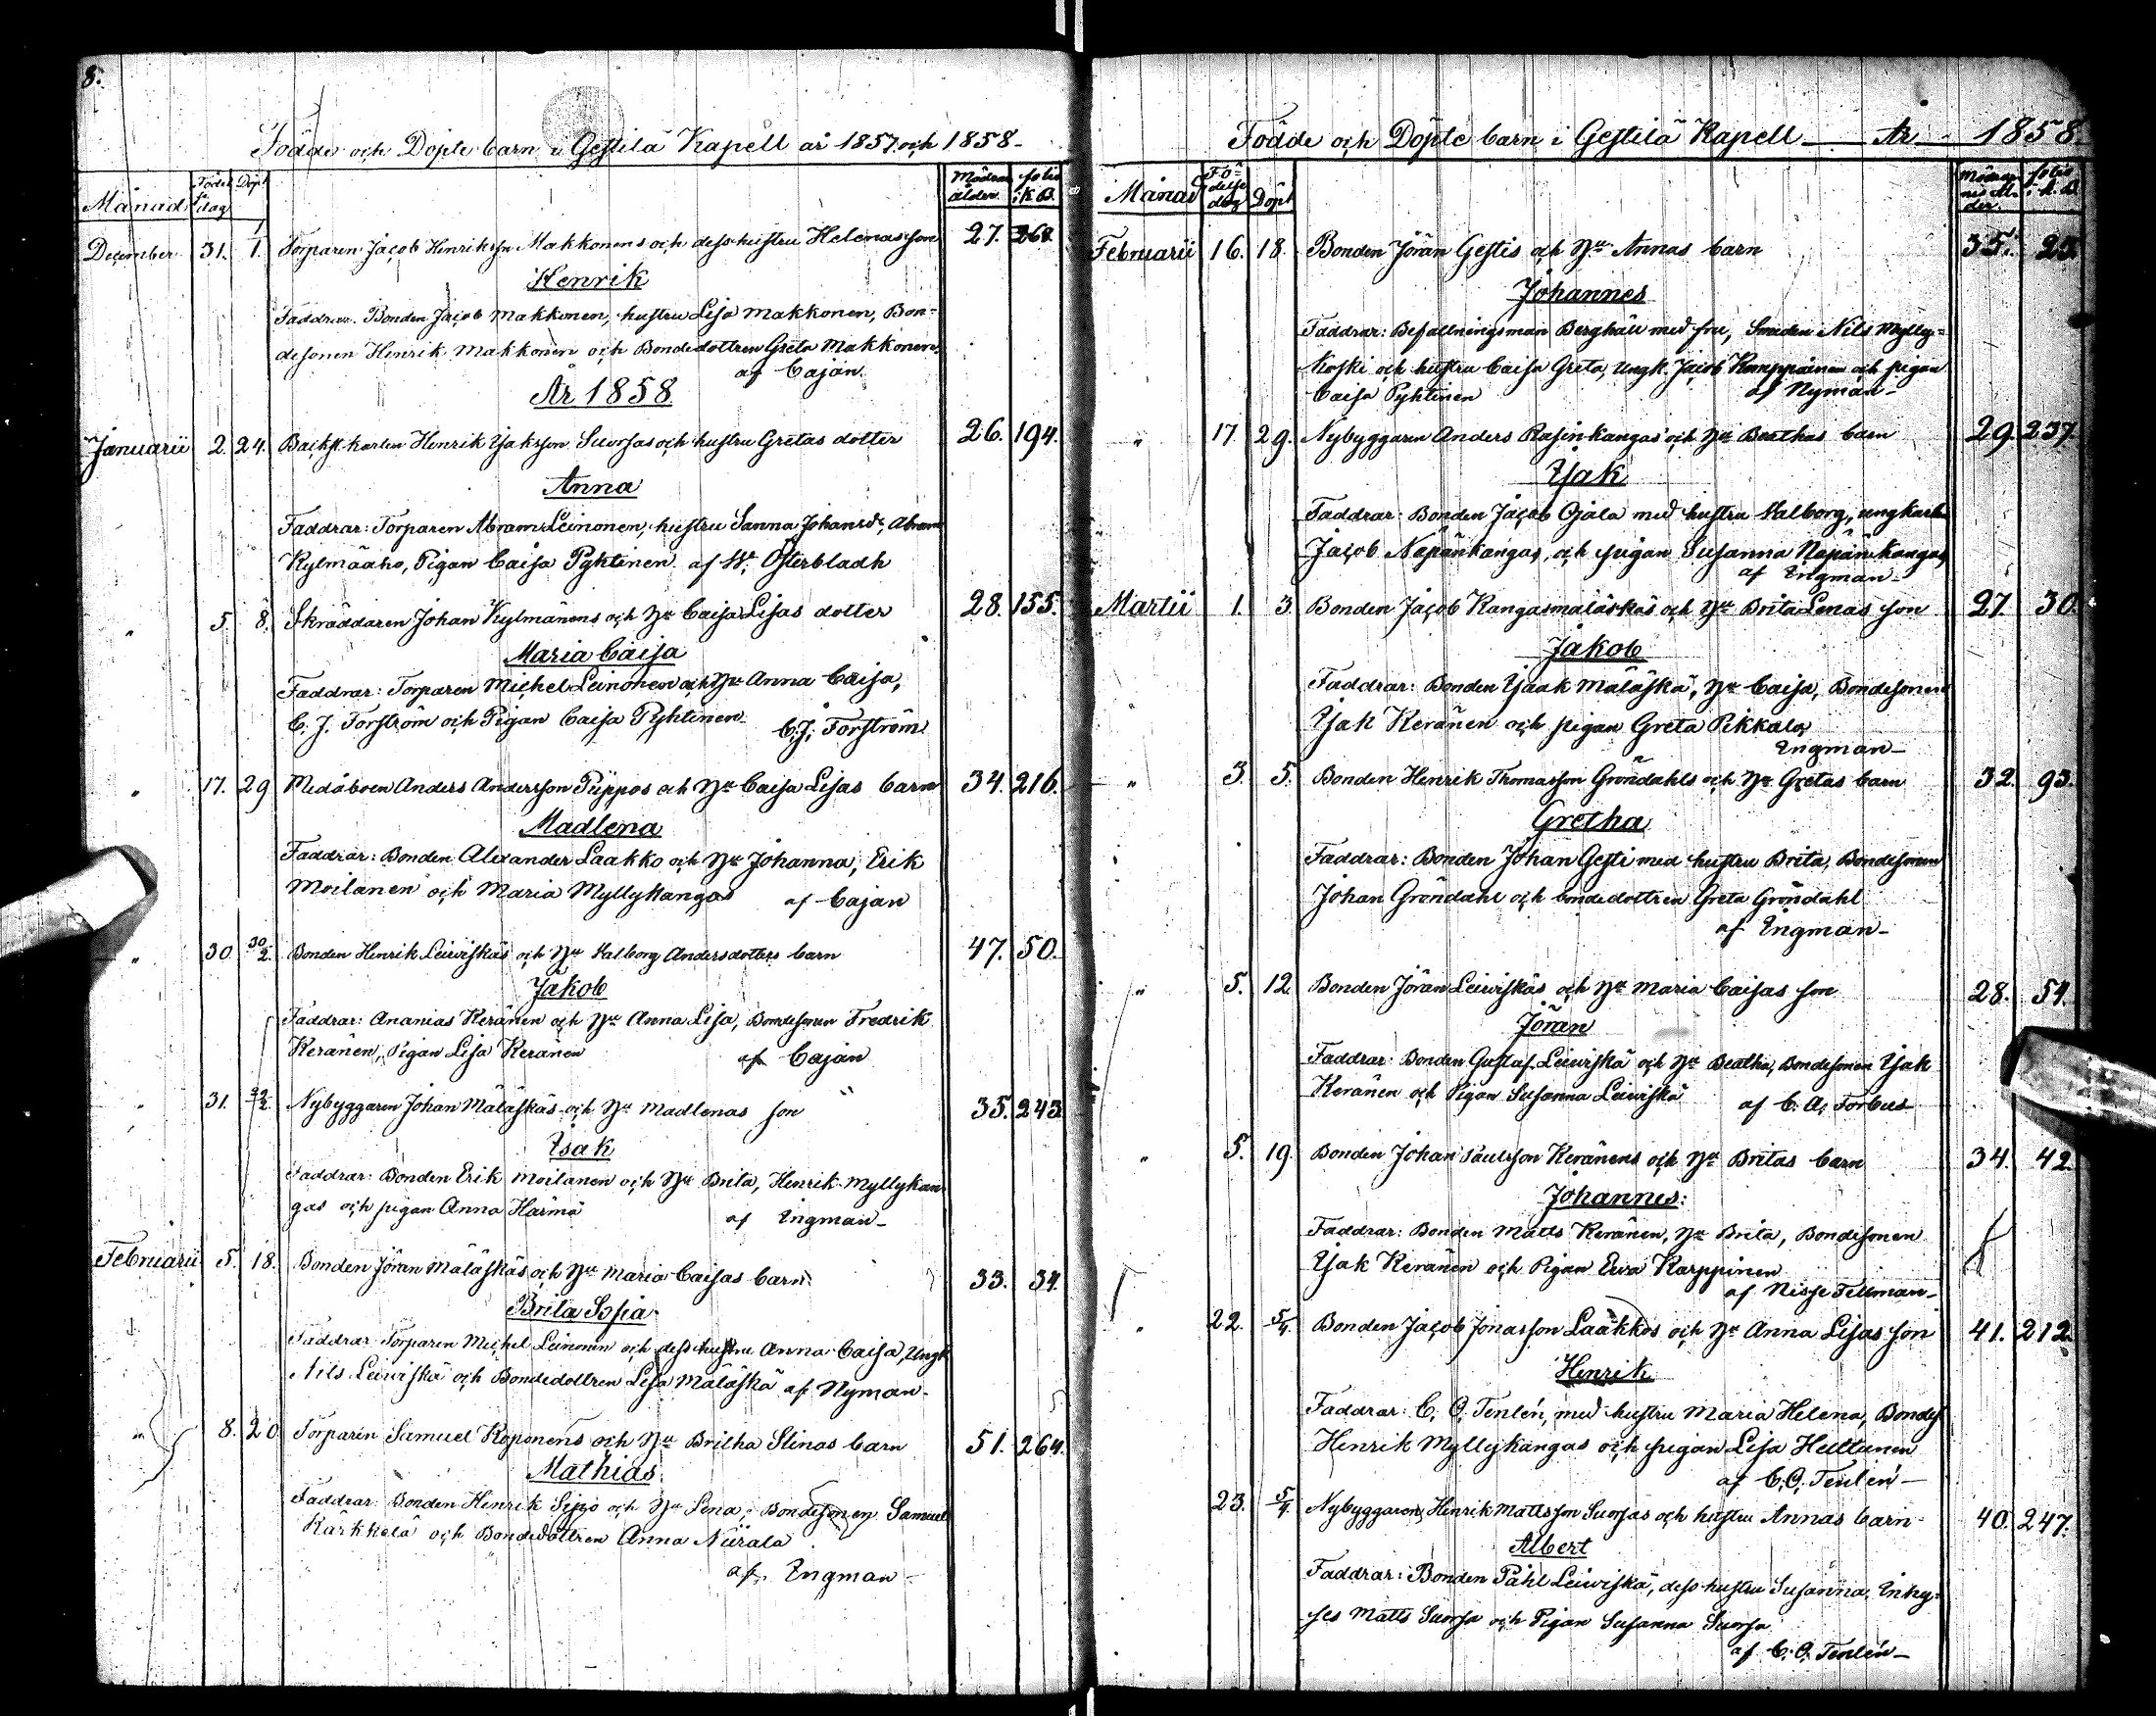 8.
Födde och Döpte barn i Gestilä Kapell år 1857 och 1858 -
Månad
Föd. dag
Döpt
Mödras ålder
folio i K.B.
December 31. 1. Torparen Jacob Henriksson Makkonens och dess hustru Helenas son 27. 268.
Henrik
Faddrar. Bonden Jacob Makkonen, hustru Lisa Makkonen, Bon=
desonen Henrik Makkonen och Bondedottren Greta Makkonen.
af Cajan.
År 1858
Januarii 2. 24. Backst. karlen Henrik Isaksson Suorsas och hustru Gretas dotter 26. 194.
Anna
Faddrar: Torparen Abram Leinonen, hustru Sanna Johansd:, Abram
Kylmäaho, Pigan Caisa Pyhtinen af W. Österbladh
" 5. 8. Skräddaren Johan Kylmänens och Hu Caisa Lisas dotter 28. 155.
Maria Caisa
Faddrar: Torparen Michel Leinonen och Hu Anna Caisa,
C. J. Forström och Pigan Caisa Pyhtinen C. J. Forström
" 17. 29 Medåboen Anders Andersson Piippos och Hu Caisa Lisas barn 34. 216.
Madlena
Faddrar: Bonden Alexander Laakko och Hu Johanna, Erik
Moilanen och Maria Myllykangas af Cajan
" 30 30/2. Bonden Henrik Leiviskäs och Hu Valborg Andersdotters barn 47. 50.
Jakob
Faddrar: Ananias Keränen och Hu Anna Lisa, Bondesonen Fredrik
Keränen, Pigan Lisa Keränen af Cajan
" 31. Nybyggaren Johan Mäläskäs och Hu Madlenas son 35. 243
Isak
Faddrar: Bonden Erik Moilanen och Hu Brita, Henrik Myllykan
gas och pigan Anna Härmä af Engman -
Februarii 5. 18. Bonden Jöran Mäläskäs och Hu Maria Caisas barn 33. 34.
Brita Sofia
Faddrar Torparen Michel Leinonen och dess hustru Anna Caisa, Ungk
Nils Leiviskä och Bondedottren Lisa Mäläskä af Nyman -
" 8. 20 Torparen Samuel Koponens och Hu Britha Stinas barn 51. 264.
Mathias
Faddrar: Bonden Henrik Sipo och Hu Lena, Bondesonen Samuel
Kärkkelä och Bondedottren Anna Niirala
af. Engman -
Födde och Döpte barn i Gestilä Kapell — År - 1858.
Månad
Fö= delse dag
Döpt
folio i K.B.
Februarii 16. 18. Bonden Jöran Gestis och Hu Annas barn 35. 23.
Johannes
Faddrar: Befallningsman Berghäll med fru, Smeden Nils Mylly=
koski och hustru Caisa Greta, Ungk. Jacob Kamppainen och pigan
Caisa Pyhtinen af Nyman -
" 17. 29. Nybyggaren Anders Rasinkangas och Hu Beathas barn 29. 237.
Isak
Faddrar: Bonden Jacob Ojala med hustru Valborg, ungkarlen
Jacob Napänkangas, och pigan Susanna Napänkangas
af Engman -
Martii 1. 3. Bonden Jacob Kangasmäläskäs och Hu Brita Lenas son 27. 30.
Jakob
Faddrar: Bonden Isaak Mäläskä, Hu Caisa, Bondesonen
Isak Keränen och pigan Greta Pikkala
Engman -
" 3. 5. Bonden Henrik Thomasson Gröndahls och Hu Gretas barn 32. 93.
Gretha
Faddrar: Bonden Johan Gesti med hustru Brita, Bondesonen
Johan Gröndahl och bondedottren Greta Gröndahl
af Engman -
" 5. 12. Bonden Jöran Leiviskäs och Hu Maria Caisas son 28. 54.
Jöran
Faddrar: Bonden Gustaf Leiviskä och Hu Beatha, Bondesonen Isak
Keränen och Pigan Susanna Leiviskä af C. A. Forbus
" 5. 19. Bonden Johan Paulsson Keränens och Hu Britas barn 34. 42
Johannes:
Faddrar: Bonden Matts Keränen, Hu Brita, Bondesonen
Isak Keränen och Pigan Eva Karppinen
af Nisse Tellman -
" 22. 5/4. Bonden Jacob Jonasson Laakkos och Hu Anna Lisas son 41. 212.
Henrik
Faddrar: C. O. Tenlén, med hustru Maria Helena, Bondes
Henrik Myllykangas och pigan Lisa Huttunen
af C. O. Tenlén -
23. 5/4 Nybyggaren Henrik Mattsson Suorsas och hustru Annas barn 40. 247.
Albert
Faddrar: Bonden Påhl Leiviskä, dess hustru Susanna, Inhy=
ses Matts Suorsa och Pigan Susanna Suorsa
af C. O. Tenlén -